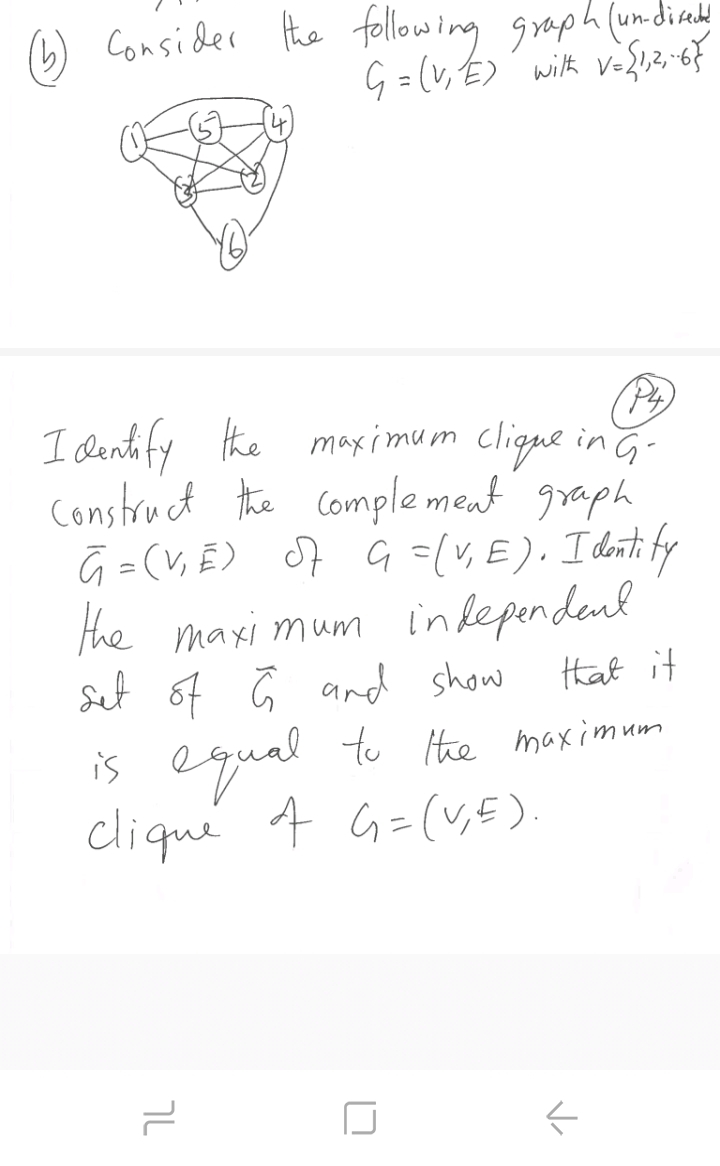 (b) Consider the following graph (un-directed
G = (V, E) with V={1,2,--6}
1 5 4
3 2
6
P4
Identify the maximum clique in G-
construct the complement graph
Ḡ = (V, Ē) of G =(V, E). Identify
the maximum independent
set of Ḡ and show that it
is equal to the maximum
clique of G=(V,E).